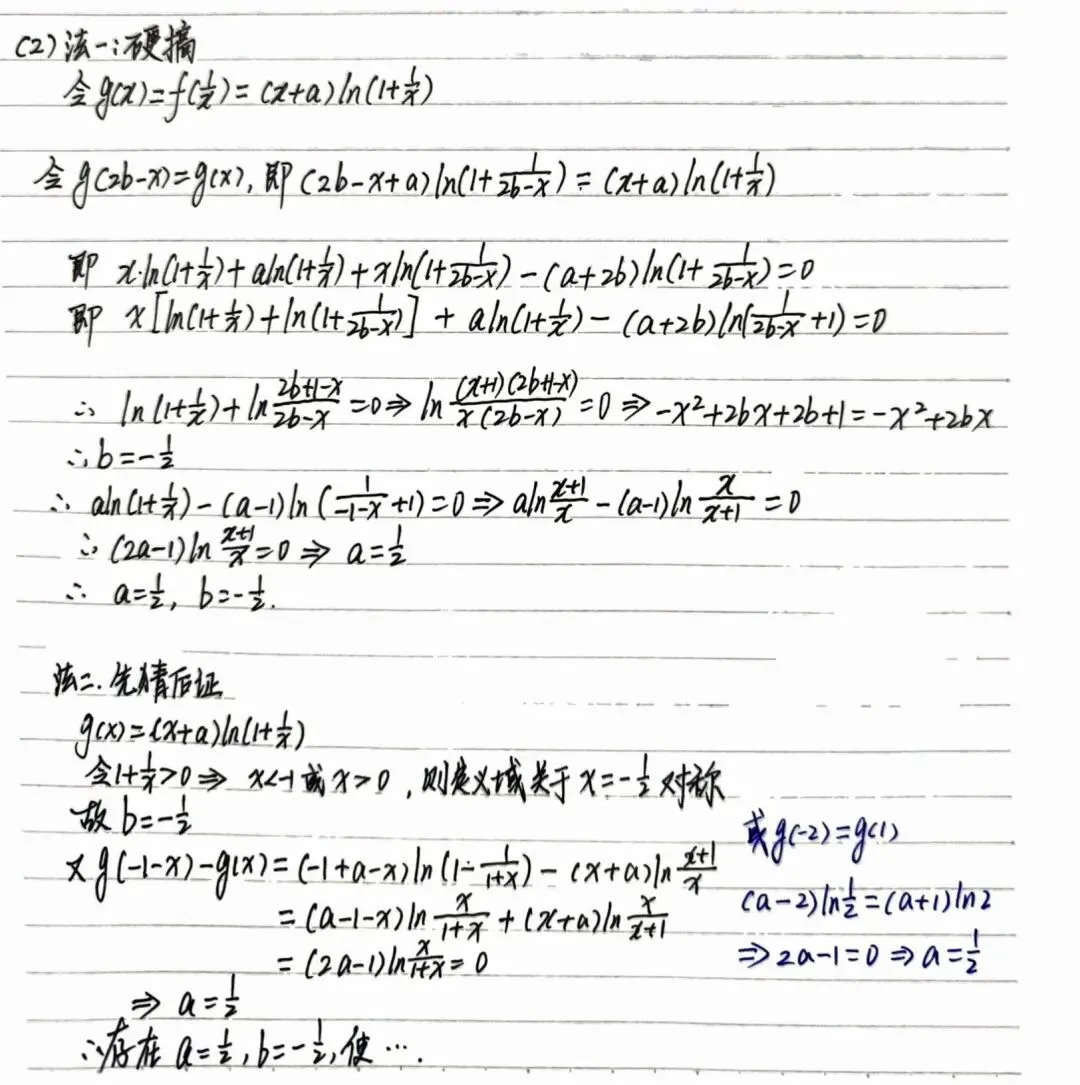 (2) 法一:硬搞
令g(x)=f(1/x)=(x+a)ln(1+1/x)
令 g(2b-x)=g(x), 即 (2b-x+a)ln(1+1/(2b-x)) = (x+a)ln(1+1/x)
即 x·ln(1+1/x)+aln(1+1/x)+xln(1+1/(2b-x))-(a+2b)ln(1+1/(2b-x))=0
即 x[ln(1+1/x)+ln(1+1/(2b-x))] + aln(1+1/x)-(a+2b)ln(1/(2b-x)+1)=0
∴ ln(1+1/x)+ln (2b+1-x)/(2b-x) =0 ⇒ ln (x+1)(2b+1-x)/x(2b-x) =0 ⇒ -x²+2bx+2b+1=-x²+2bx
∴b=-1/2
∴ aln(1+1/x)-(a-1)ln(1/(-1-x)+1)=0 ⇒ aln (x+1)/x -(a-1)ln x/(x+1) =0
∴(2a-1)ln (x+1)/x=0 ⇒ a=1/2
∴ a=1/2, b=-1/2.
法二. 先猜后证
g(x)=(x+a)ln(1+1/x)
令1+1/x>0 ⇒ x<-1 或 x>0 ,则定义域关于 x=-1/2 对称
故 b=-1/2
又 g(-1-x)-g(x)=(-1+a-x)ln(1-1/(1+x))-(x+a)ln (x+1)/x
=(a-1-x)ln x/(1+x)+(x+a)ln x/(x+1)
=(2a-1)ln x/(1+x)=0
⇒ a=1/2
∴存在 a=1/2, b=-1/2, 使 ….
或g(-2)=g(1)
(a-2)ln 1/2=(a+1)ln2
⇒2a-1=0 ⇒a=1/2